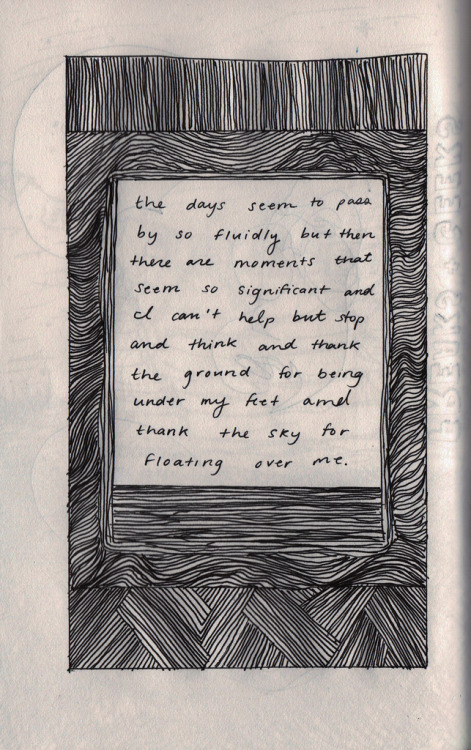 the days seem to pass
by so fluidly but then
there are moments that
seem so significant and
I can't help but stop
and think and thank
the ground for being
under my feet and
thank the sky for
floating over me.
FREAKS + GEEKS